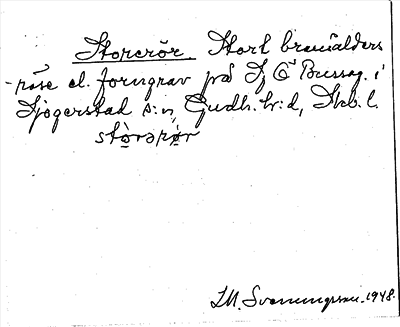 Storerör. Stort bronsålders
-röse el. forngrav på Fj Ö Bussag. i
Sjogerstad s:n, Gudh. h:d, Skb. l.
störorör
I.M. Svenungsson. 1948.